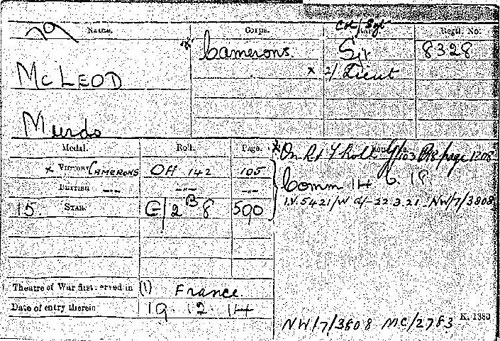 Name. Corps. Rank Regtl. No.
Col/Sgt
* Camerons. Sjt 8328
x 2/Lieut
McLEOD
Murdo
Medal. Roll. Page.
x VICTORY CAMERONS OH 142 105
BRITISH -- -- --
15 STAR G/2 B 8 590
On R of
Comm 14 6 18
I.V. 5421/W d/- 22.3.21. NW/7/3808
Theatre of War first served in (1) France.
Date of entry therein 19.12.14
NW/7/3808 MC/2783 K. 1380